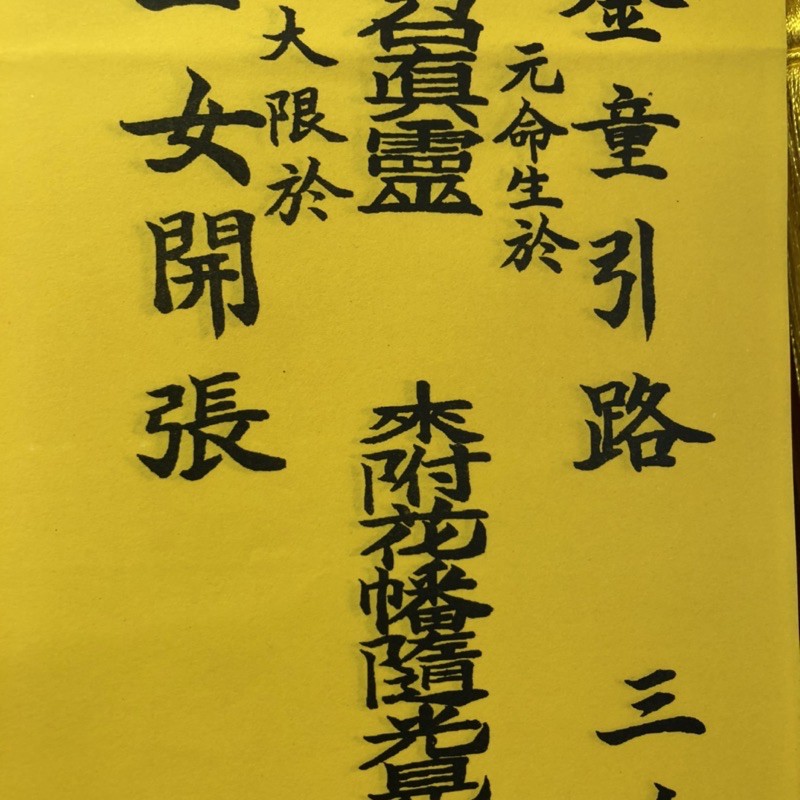 金童引路 三
元命生於
召真靈 來附花幡隨光
大限於
女開張